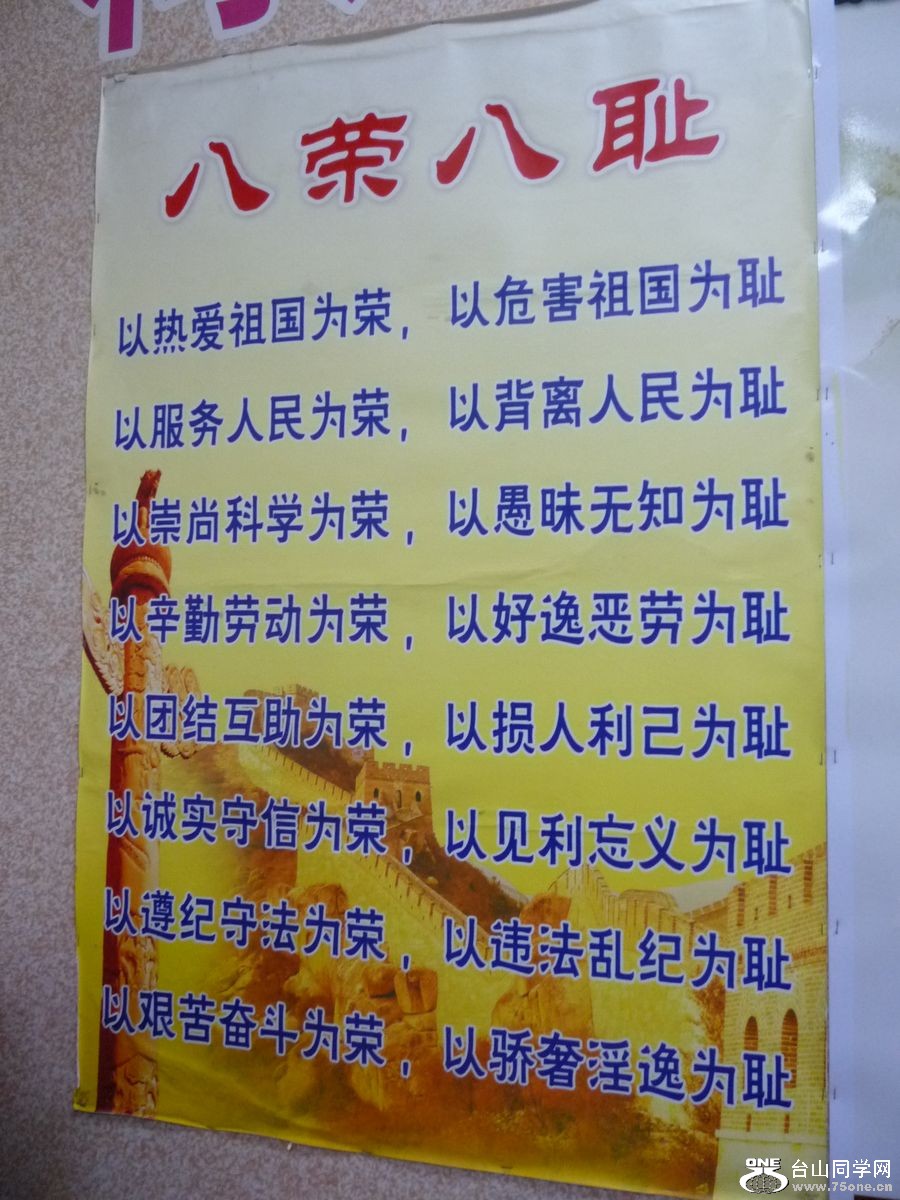 八荣八耻
以热爱祖国为荣，以危害祖国为耻
以服务人民为荣，以背离人民为耻
以崇尚科学为荣，以愚昧无知为耻
以辛勤劳动为荣，以好逸恶劳为耻
以团结互助为荣，以损人利己为耻
以诚实守信为荣，以见利忘义为耻
以遵纪守法为荣，以违法乱纪为耻
以艰苦奋斗为荣，以骄奢淫逸为耻
ONE 台山同学网
www.75one.cn